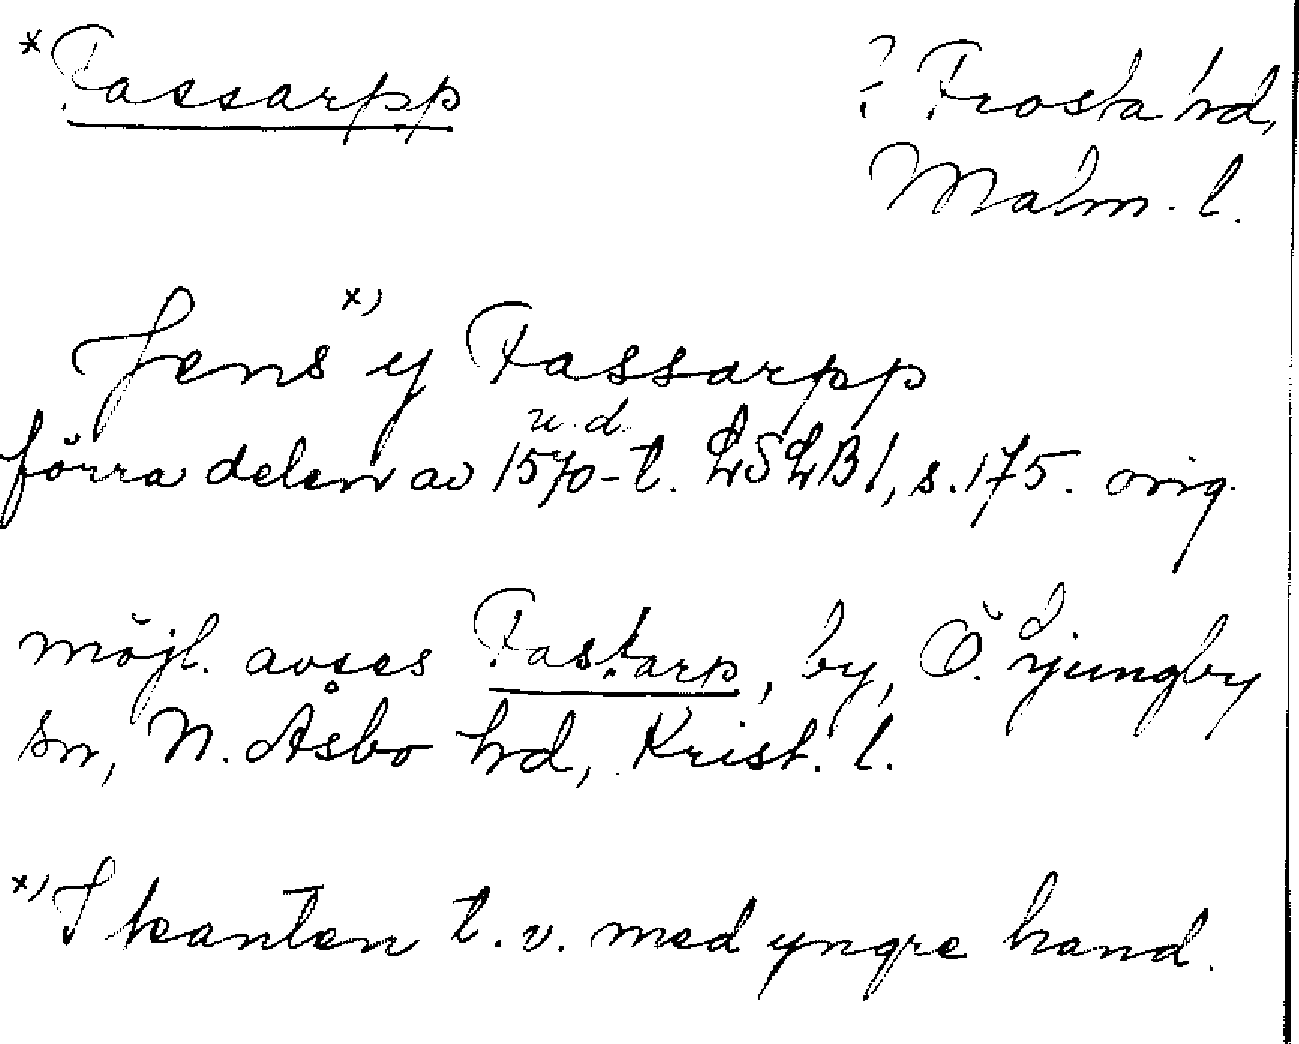 *Fassarpp
? Frosta hd,
Malm. l.
Jens x) y Fassarpp
u. d.
förra delen av 1570-t. LSLB1, s. 175. orig.
möjl. avses Fastarp, by, Ö. Ljungby
sn, N. Åsbo hd, Krist. l.
x) I kanten t. v. med yngre hand.